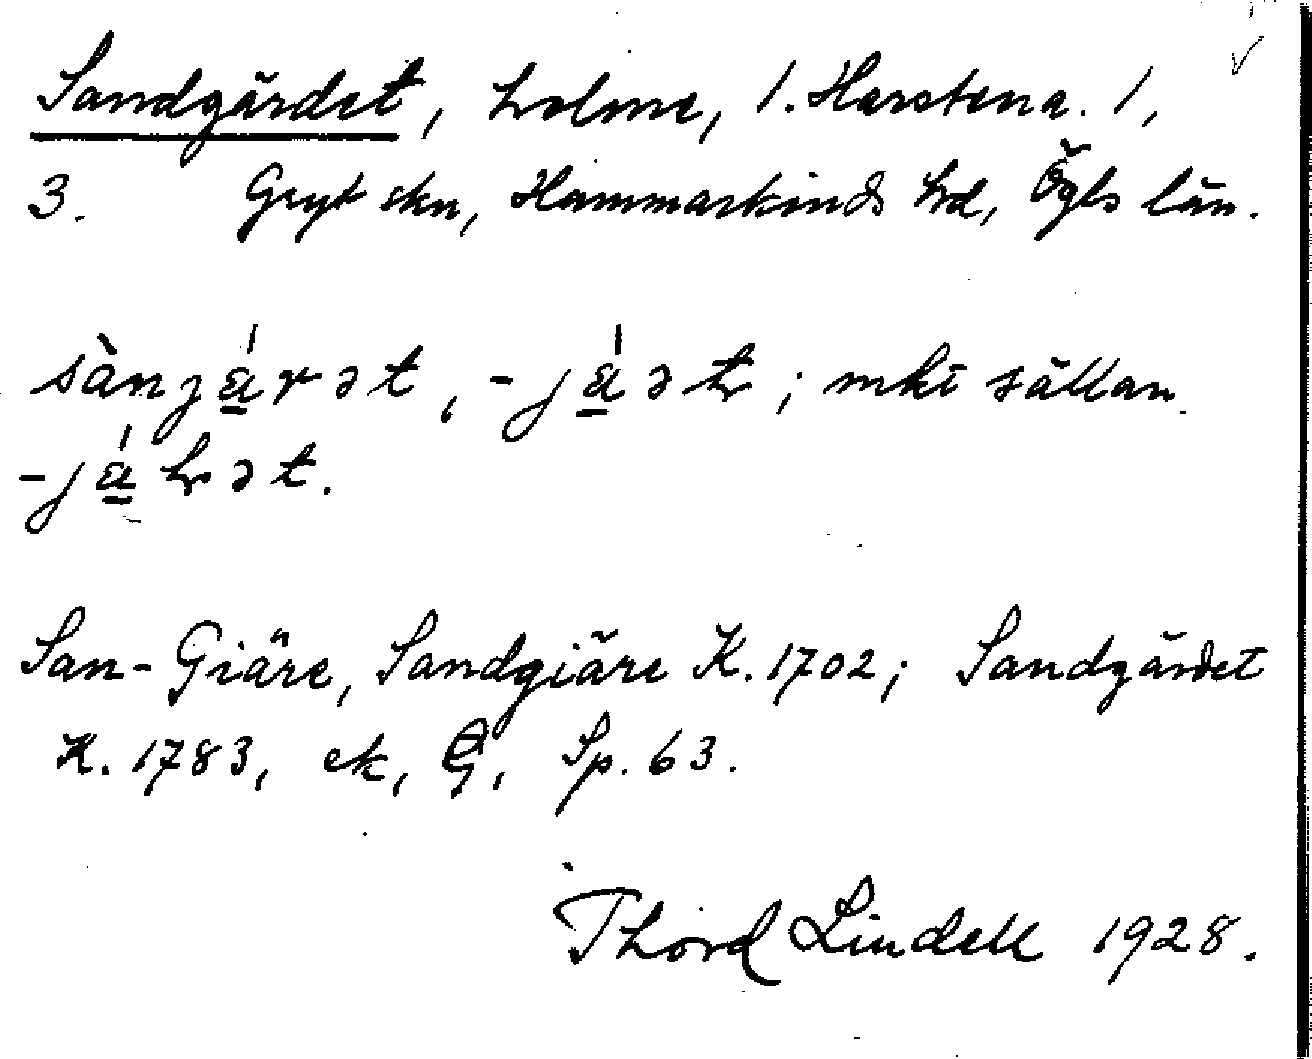 Sandgärdet, holme, 1. Harstena. 1,
3. Gryt skn, Hammarkinds hd, Ögls län.
sànjä́rət, -jä́ət; mkt sällan
-jä́hət.
San-Giäre, Sandgiäre K. 1702; Sandgärdet
K. 1783, ek, G, Sp. 63.
Thord Lindell 1928.